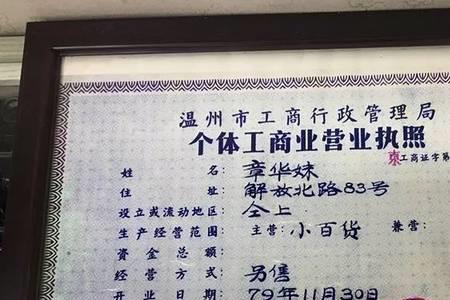 温州市工商行政管理局
个体工商业营业执照
东工商证字第
姓名：章华妹
住址：解放北路83号
设立或流动地区：仝上
生产经营范围：主营：小百货 兼营：
资金总额：
经营方式：另售
开业日期：79年11月30日